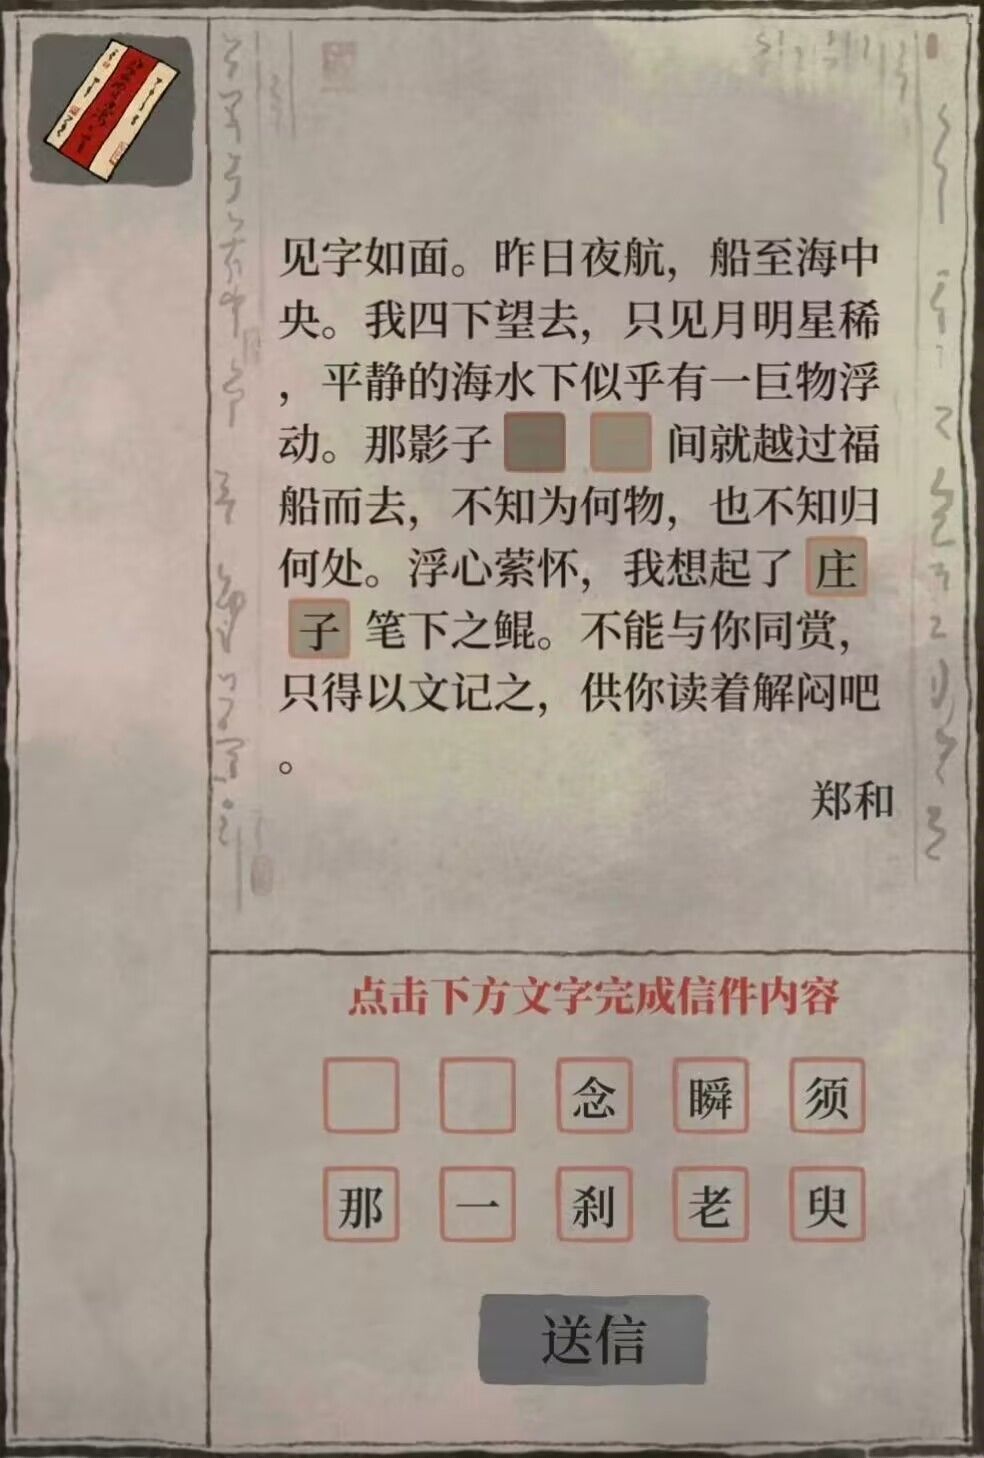 见字如面。昨日夜航，船至海中
央。我四下望去，只见月明星稀
，平静的海水下似乎有一巨物浮
动。那影子 间就越过福
船而去，不知为何物，也不知归
何处。浮心萦怀，我想起了 庄
子 笔下之鲲。不能与你同赏，
只得以文记之，供你读着解闷吧
。
郑和
点击下方文字完成信件内容
念 瞬 须
那 一 刹 老 臾
送信